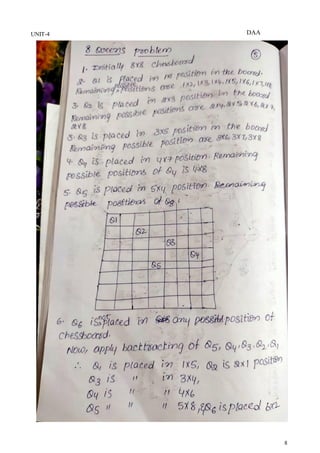 UNIT-4
DAA
8 Queens problem
5
1. Initially 8x8 chessboard
2. Q1 is placed in position in the board.
Remaining positions are 1x2, 1x3, 1x4, 1x5, 1x6, 1x7, 1x8
3. Q2 is placed in 2x3 position in the board
Remaining possible positions are 2x4, 2x5, 2x6, 2x7,
2x8
3. Q3 is placed in 3x5 position in the board
Remaining possible position are 3x6, 3x7, 3x8
4. Q4 is placed in 4x7 position. Remaining
possible positions of Q4 is 4x8
5. Q5 is placed in 5x4 position Remaining
possible positions of
Q1
Q2
Q3
Q4
Q5
6. Q6 is not placed in any position of
chessboard.
Now, apply backtracting of Q5, Q4, Q3, Q2, Q1
∴ Q1 is placed in 1x5, Q2 is 2x1 position
Q3 is " in 3x4,
Q4 is " " 4x6
Q5 " " " 5x8, Q6 is placed 6x2
8